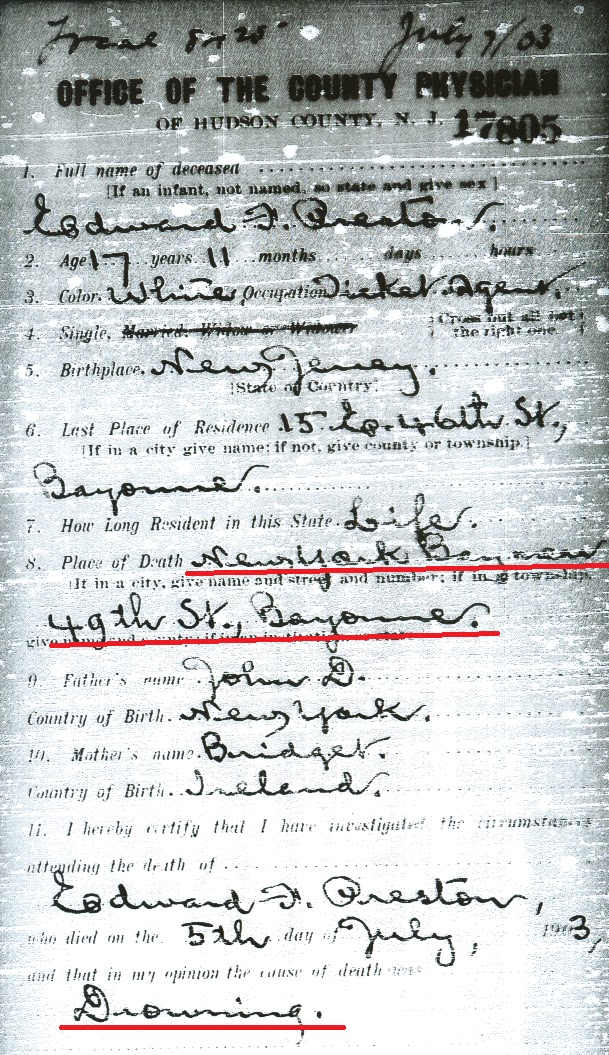 July 7/03
OFFICE OF THE COUNTY PHYSICIAN
OF HUDSON COUNTY, N. J. 17805
1. Full name of deceased
[If an infant, not named, so state and give sex]
Edward F. Preston.
2. Age 17 years 11 months days hours
3. Color. White, Occupation Ticket Agent.
4. Single, Married, Widow or Widower [Cross out all not
the right one.]
5. Birthplace. New Jersey.
[State or Country]
6. Last Place of Residence 15 E. 46th St.,
[If in a city give name; if not, give county or township.]
Bayonne.
7. How Long Resident in this State. Life.
8. Place of Death New York Bay near
[If in a city, give name and street and number; if in a township,
49th St., Bayonne.
give name and county; if
9. Father's name John D.
Country of Birth. New York.
10. Mother's name. Bridget.
Country of Birth. Ireland.
11. I hereby certify that I have investigated the circumstances
attending the death of
Edward F. Preston,
who died on the 5th day of July, 1903,
and that in my opinion the cause of death was
Drowning.